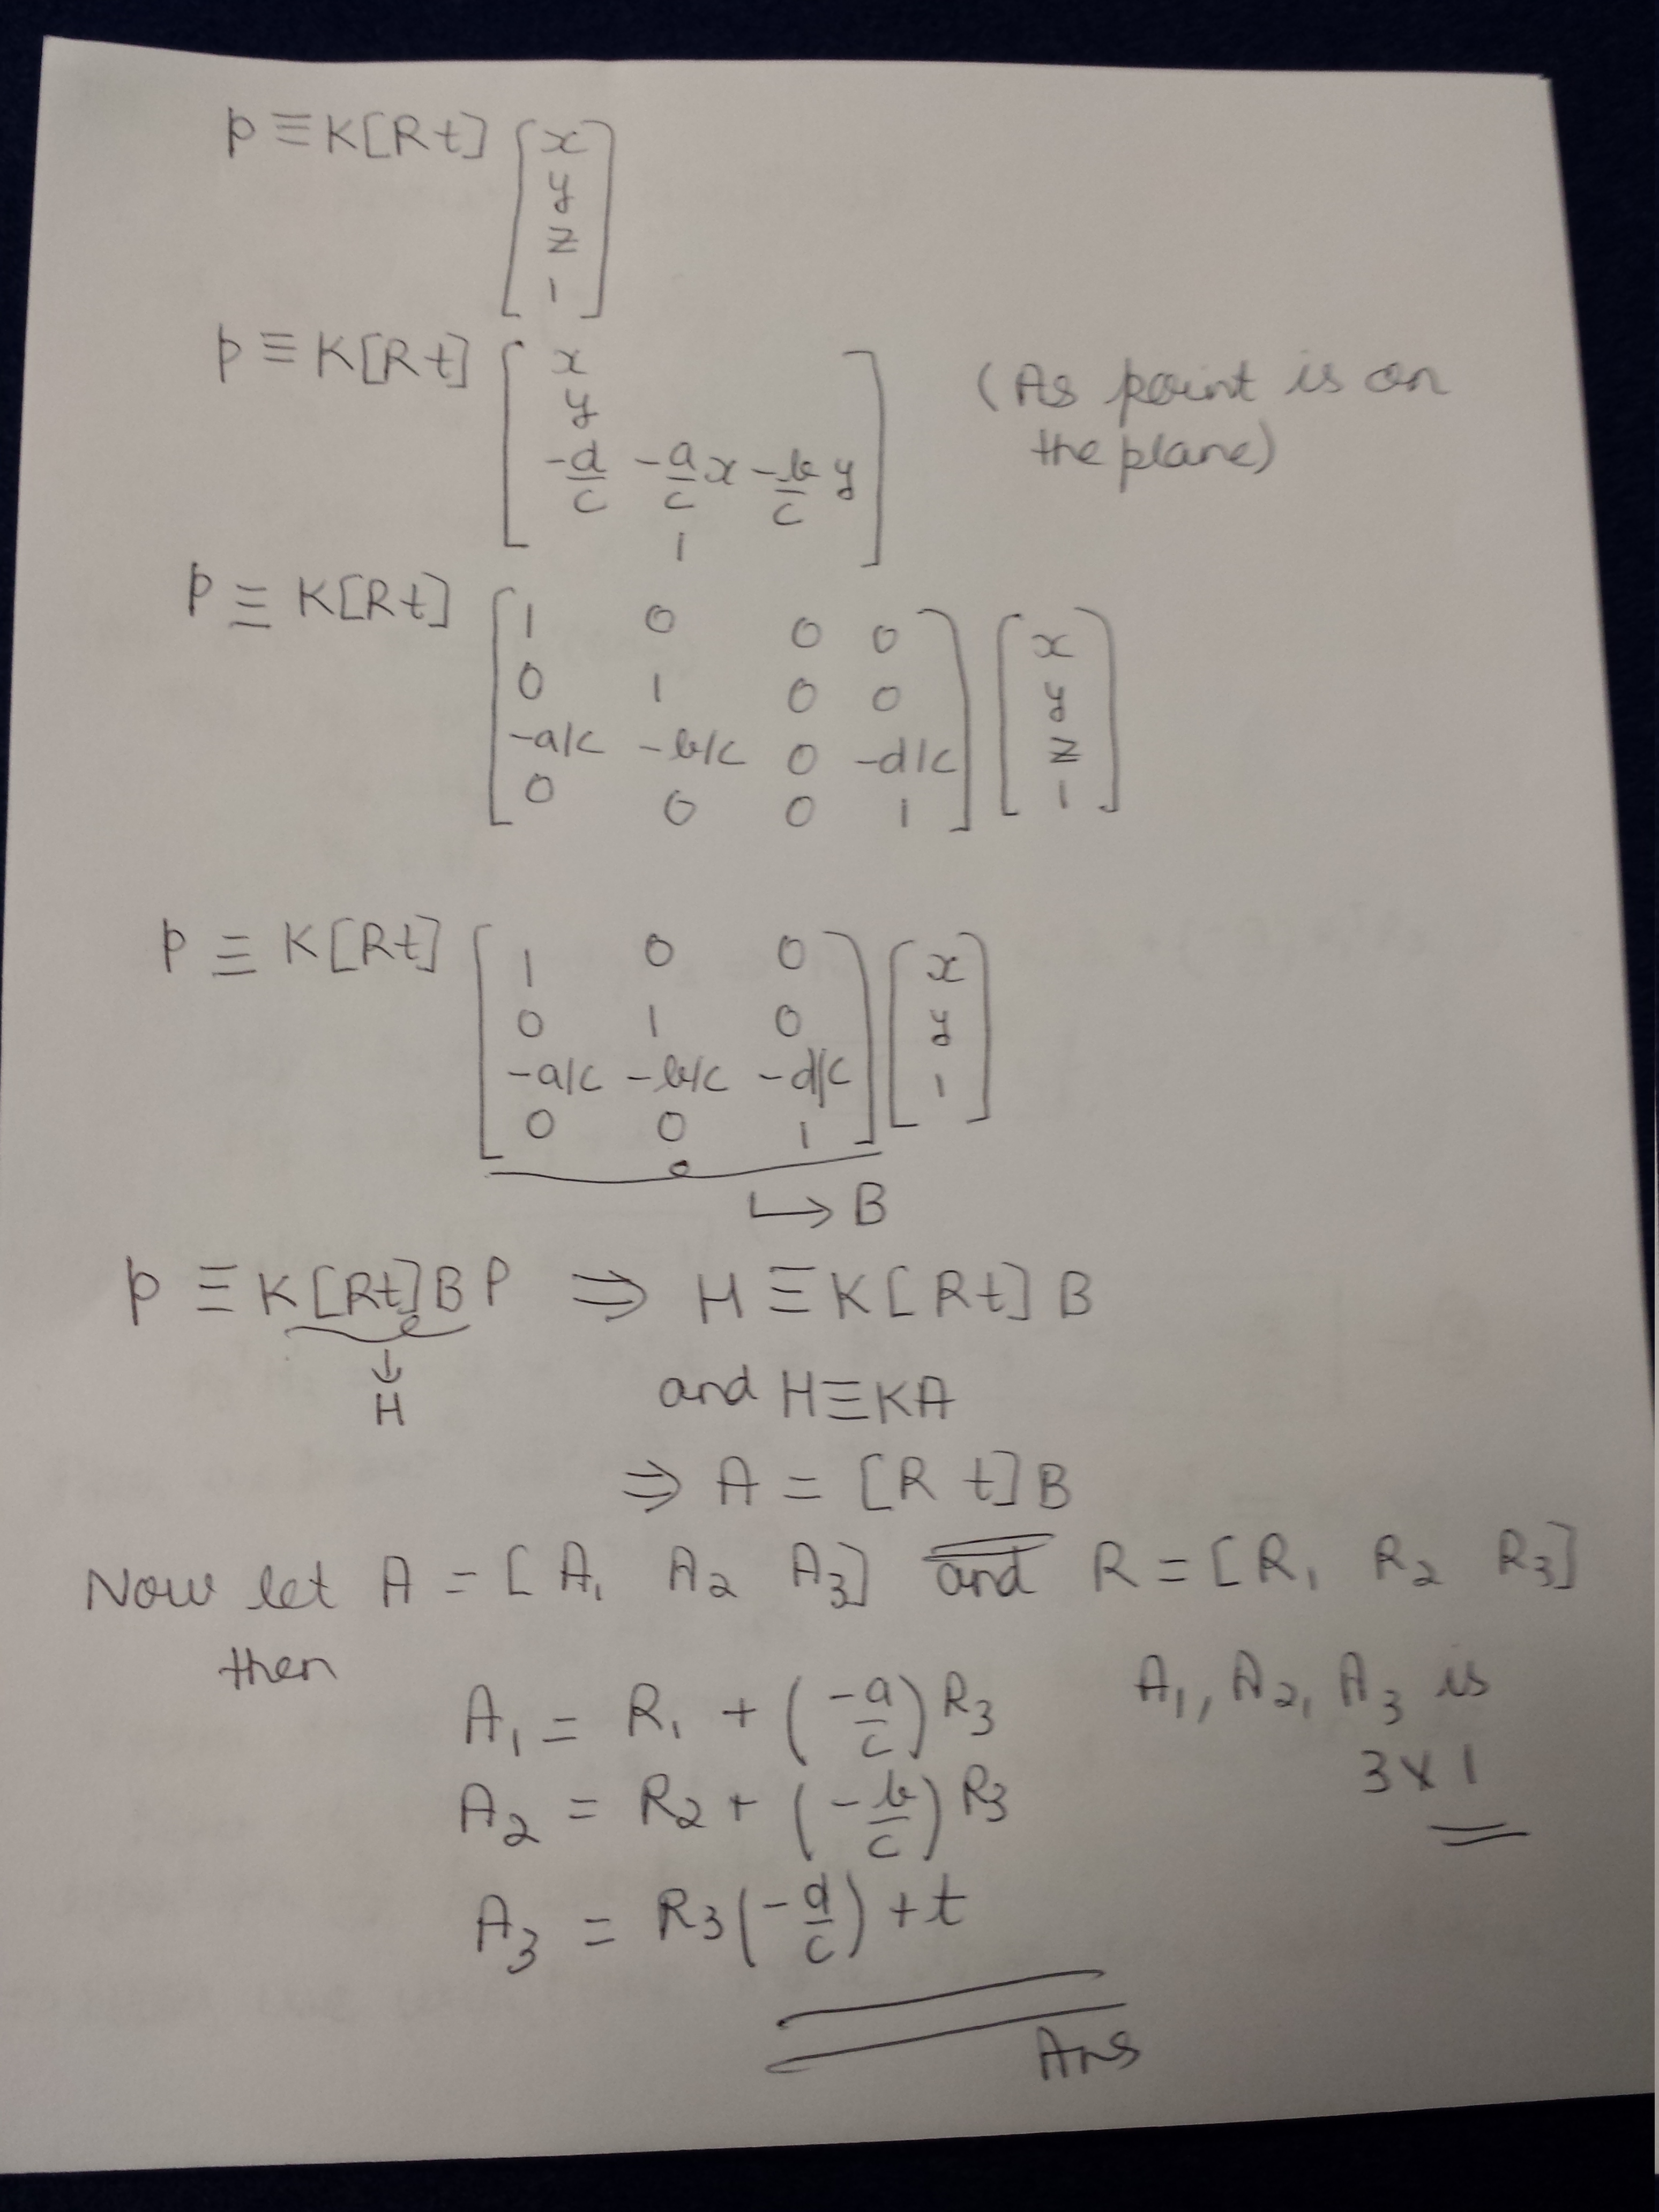 p ≡ K[R t] [x y z 1]
p ≡ K[R t] [x y -d/c -a/c x -b/c y 1] (As point is on the plane)
p ≡ K[R t] [1 0 0 0
0 1 0 0
-a/c -b/c 0 -d/c
0 0 0 1] [x y z 1]
p ≡ K[R t] [1 0 0
0 1 0
-a/c -b/c -d/c
0 0 1] [x y 1]
↳ B
p ≡ K[R t]B P ⇒ H ≡ K[R t] B
↓
H
and H ≡ KA
⇒ A = [R t]B
Now let A = [A₁ A₂ A₃] and R = [R₁ R₂ R₃]
then
A₁ = R₁ + (-a/c) R₃
A₂ = R₂ + (-b/c) R₃
A₃ = R₃(-d/c) + t
A₁, A₂, A₃ is
3 x 1
Ans